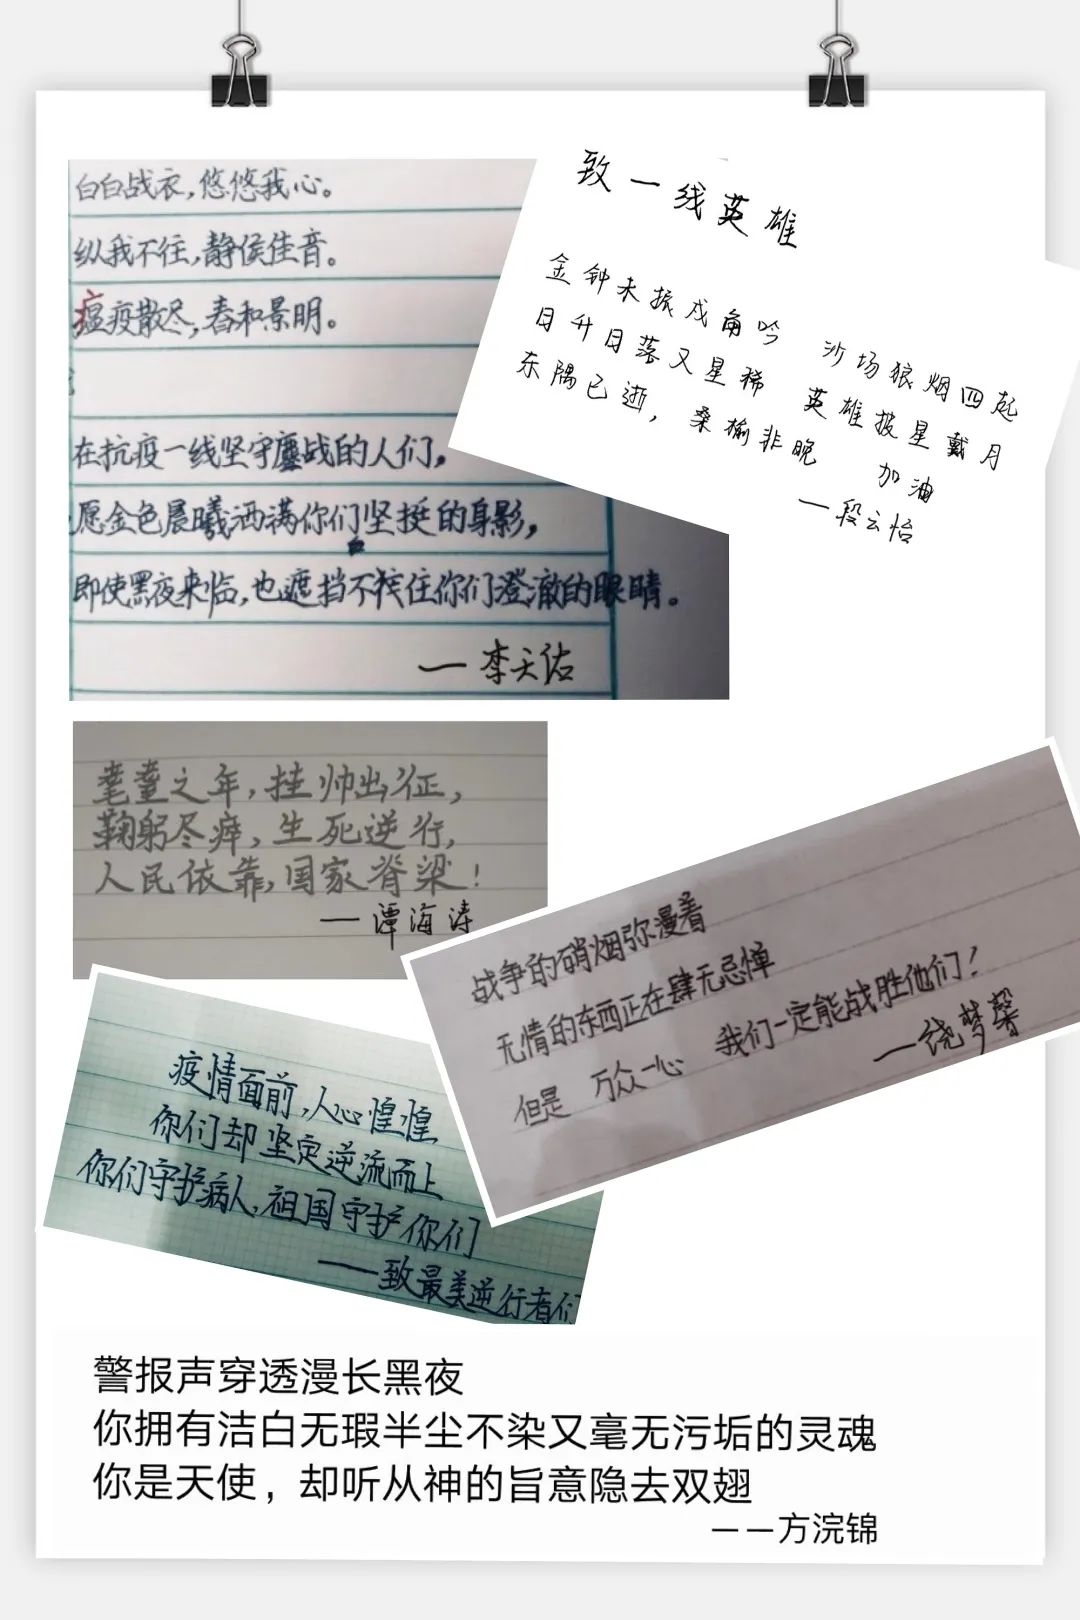 白白战衣,悠悠我心。
纵我不往,静侯佳音。
瘟疫散尽,春和景明。
在抗疫一线坚守鏖战的人们,
愿金色晨曦洒满你们坚挺的身影,
即使黑夜来临,也遮挡不住你们澄澈的眼睛。
——李天佑
致一线英雄
金钟未振戍角吟 沙场狼烟四起
日升日落又星稀 英雄披星戴月
东隅已逝,桑榆非晚 加油
—段云怡
耄耋之年,挂帅出征,
鞠躬尽瘁,生死逆行,
人民依靠,国家脊梁!
——谭海涛
战争的硝烟弥漫着
无情的东西正在肆无忌惮
但是 万众一心 我们一定能战胜他们!
——饶梦馨
疫情面前,人心惶惶
你们却坚定逆流而上
你们守护病人,祖国守护你们
——致最美逆行者们
警报声穿透漫长黑夜
你拥有洁白无瑕半尘不染又毫无污垢的灵魂
你是天使，却听从神的旨意隐去双翅
——方浣锦